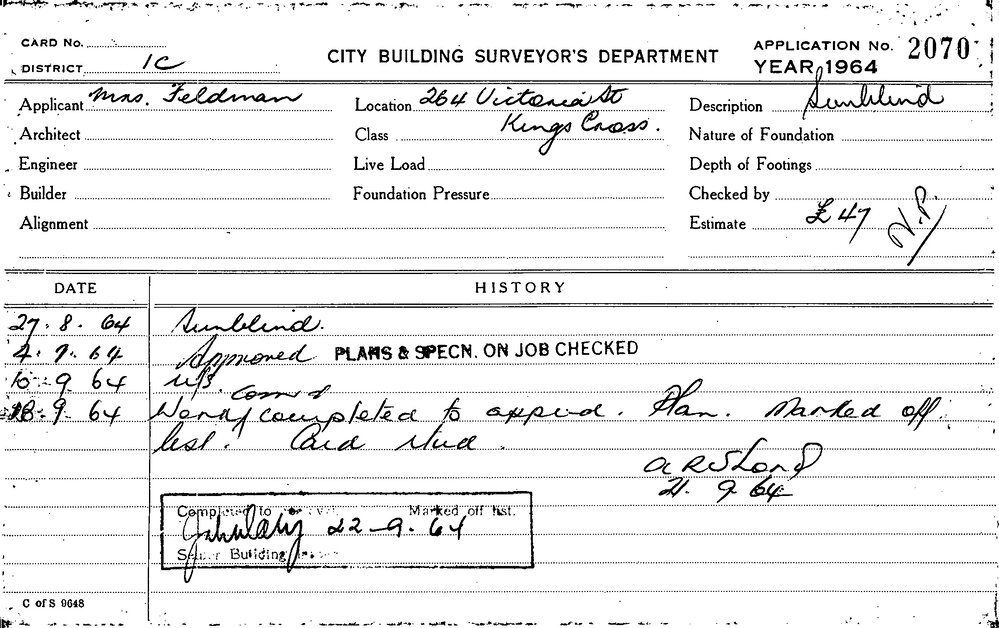 CARD No.
DISTRICT 1C
CITY BUILDING SURVEYOR'S DEPARTMENT
APPLICATION No. 2070
YEAR, 1964
Applicant Mrs. Feldman
Location 264 Victoria St
Kings Cross.
Description Sunblind
Architect
Class
Nature of Foundation
Engineer
Live Load
Depth of Footings
Builder
Foundation Pressure
Checked by
Alignment
Estimate £47 N.P.
DATE HISTORY
27.8.64 Sunblind.
4.9.64 Approved PLANS & SPECN. ON JOB CHECKED
10.9.64 u/s.
18.9.64 Work completed to appvd. Plan. Marked off
list. Card
21.9.64
Completed to Marked off list.
22-9-64
Building
C of S 9648